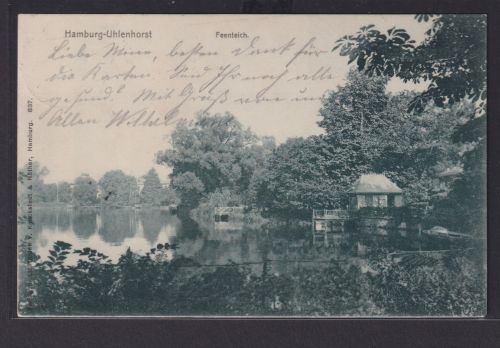 Hamburg-Uhlenhorst
Feenteich.
Liebe Minne, besten Dank für
die Karten. Sind Ihr noch alle
gesund? Mit Gruß von uns
Allen
Knackstedt & Näther, Hamburg. 637.